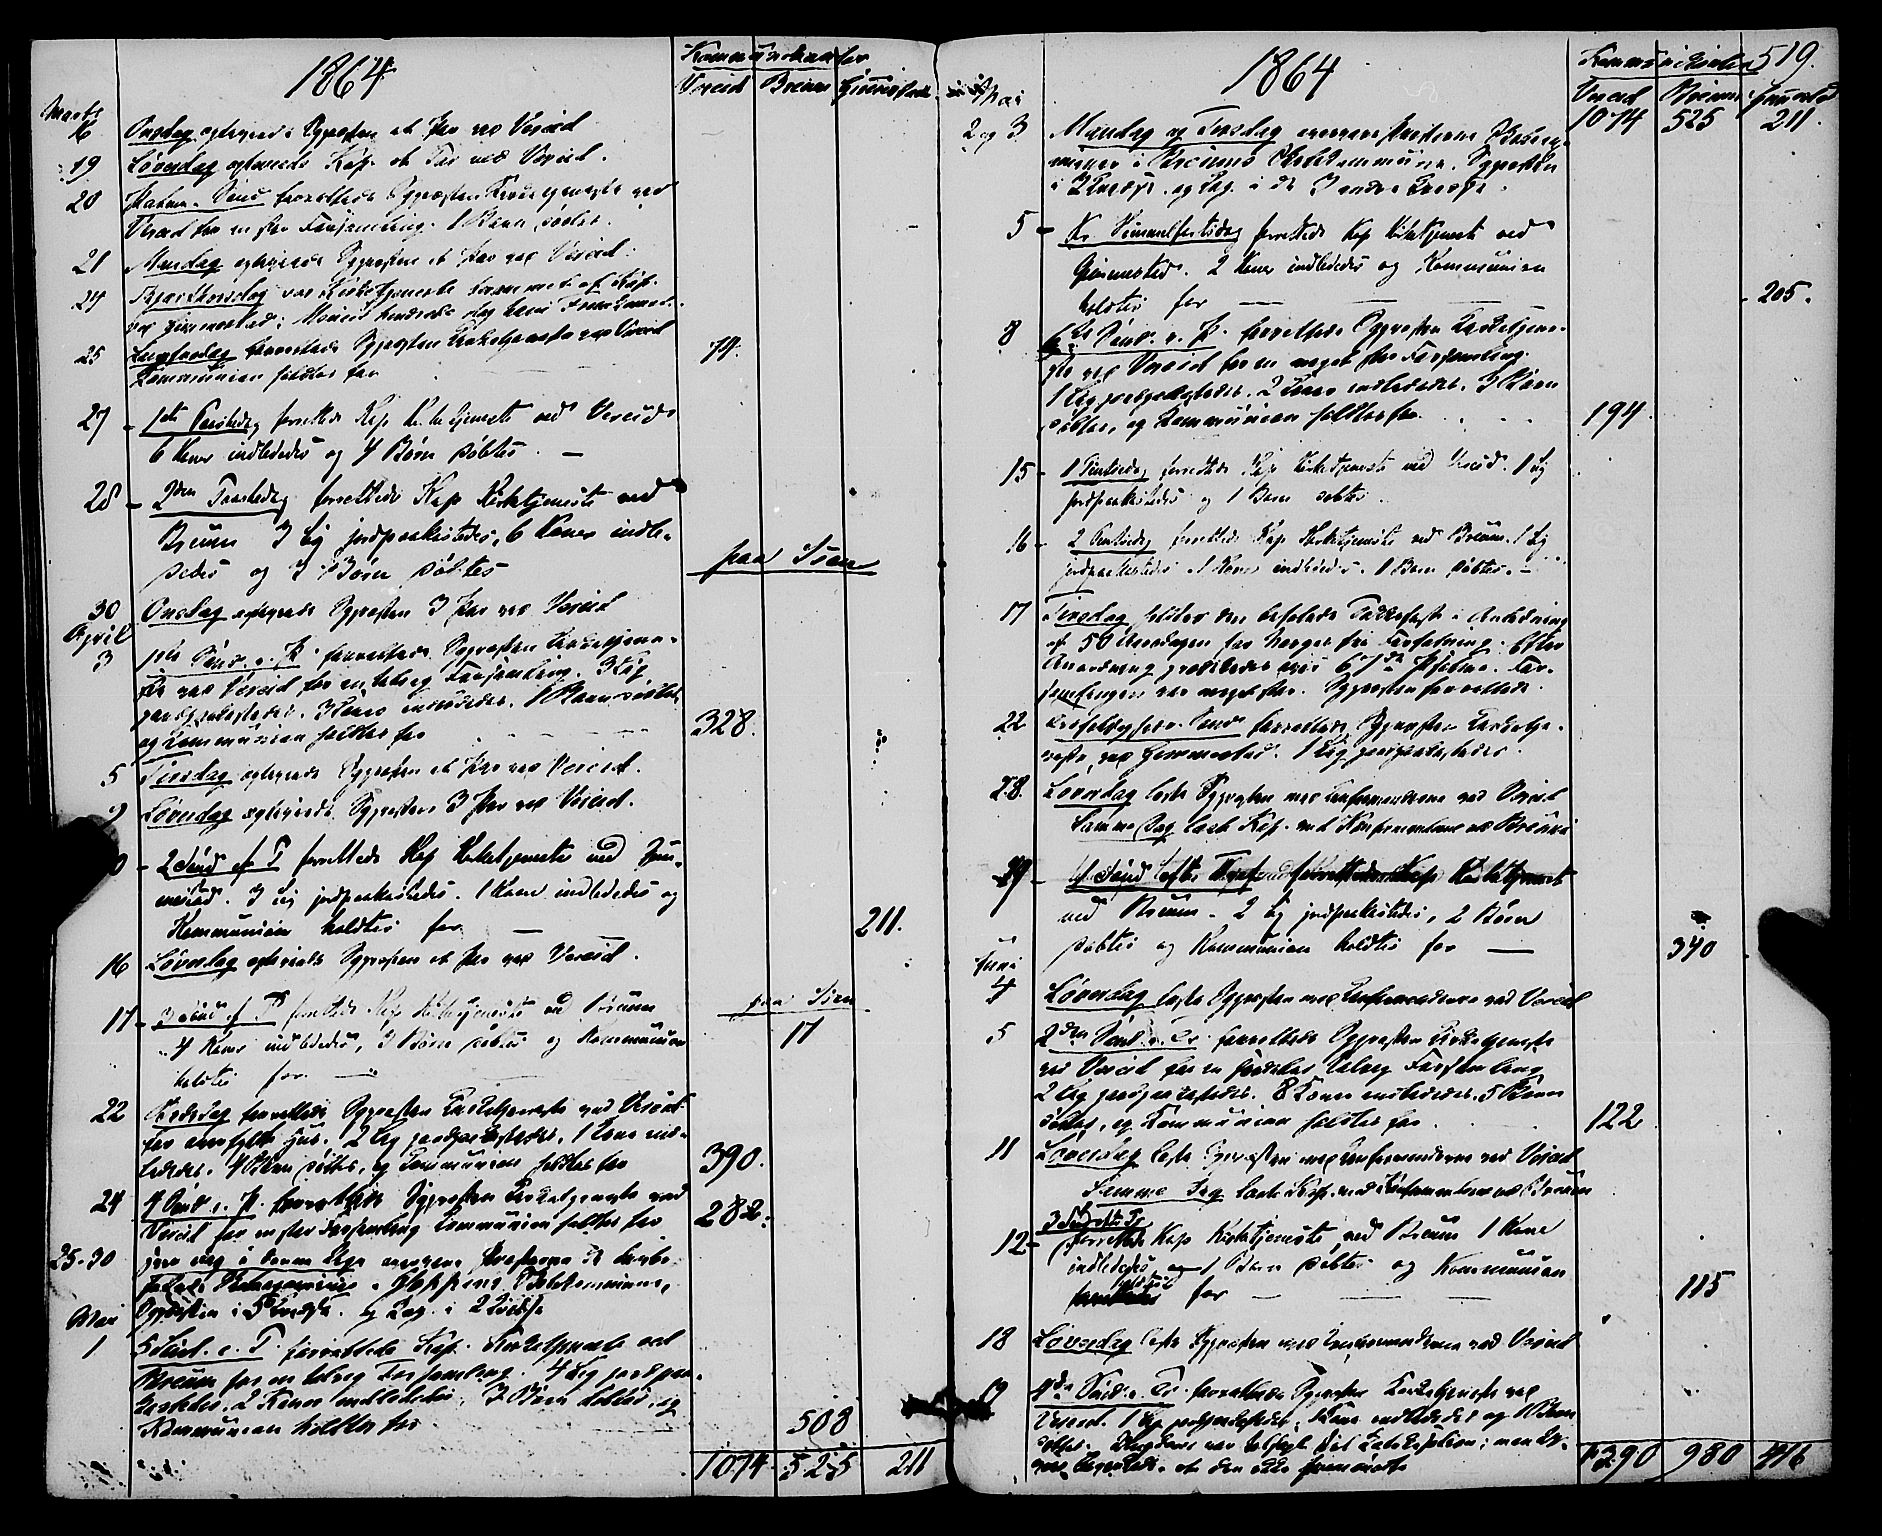 1864
Kommunikanter
Vereid Breum Gimmestad
Marts
16 Onsdag egteviede Sgpresten et Par ved Vereid
19 Løverdag egteviede Kap. et Par ved Vereid.
20 Palme-Sønd. forrettede Sgpresten Kirketjeneste ved
Vereid for en stor Forsamling. 1 Barn døbtes.
21 Mandag egteviede Sgpresten et Par ved Vereid.
24 Skjærthorsdag var Kirketjeneste
ved Gimmestad;
25 Langfredag forrettede Sgpresten Kirketjeneste ved Vereid
Kommunion holdtes for 74.
27 - 1ste Paaskedag forrettede Kap Kirketjeneste ved Vereid
6 Koner indlededes og 4 Børn døbtes. —
28 - 2den Paaskedag forrettede Kap Kirketjeneste ved
Breum 3 Lig jordpaakastedes, 6 Koner indle-
dedes og 3 Børn døbtes
paa Sien
30 Onsdag egteviede Sgpresten 3 Par ved Vereid
April
3 1ste Sønd. e. P. forrettede Sgpresten Kirketjene-
ste ved Vereid for en talrig Forsamling. 3 Lig
jordpaakastedes. 3 Koner indlededes. 1 Barn døbtes
og Kommunion holdtes for 328.
5 Tirsdag egteviede Sgpresten et Par ved Vereid.
9 Løverdag egteviede Sgpresten 3 Par ved Vereid.
0 - 2 Sønd ef P forrettede Kap Kirketjeneste ved Gim-
mestad. 3 Lig jordpaakastedes. 1 Kone indlededes og
Kommunion holdtes for — 211.
16 Løverdag egteviede Sgpresten et Par ved Vereid.
paa Sien
17 - 3 Sønd ef P forrettede Kap Kirketjeneste ved Breum
4 Koner indlededes, 3 Børn døbtes og Kommunion 17
holdtes for —
22 Bededag forrettede Sgpresten Kirketjeneste ved Vereid
for opfyldt Huus. 2 Lig jordpaakastedes, 1 Kone ind-
lededes. 4 Børn døbtes, og Kommunion holdtes for 390.
24 4 Sønd e. P. forrettede Sgpresten Kirketjeneste ved
Vereid for en stor Forsamling Kommunion holdtes for 282.
25-30 hver Dag i denne Uge Presterne de
i Hoppens Skolekommune,
Sgpresten i 5 Kredse og Kap. i 2 Kredse
Mai
1 5 Sønd. e. P. forrettede Kap. Kirketjeneste ved
Breum for en talrig Forsamling. 4 Lig jordpaa-
kastedes, 2 Koner indlededes, 3 Børn døbtes, og
Kommunion holdtes for 508
1074 525 211
1864
Kommunikanter 519.
Vereid Breum Gimmestad
1074 525 211.
Mai
2 og 3 Mandag og Tirsdag
i Breums Skolekommune. Sgpresten
i 2 Kredse. og Kap. i de 3 andre Kredse.
5 - Kr. Himmelfartsdag forrettede Kap Kirketjeneste ved
Gimmestad. 2 Koner indlededes og Kommunion
holdtes for — — — 205.
8 6te Sønd. e. P. forrettede Sgpresten Kirketjene-
ste ved Vereid for en meget stor Forsamling.
1 Lig jordpaakastedes. 2 Koner indlededes. 3 Børn
døbtes, og Kommunion holdtes for 194
15 - 1 Pintsedag forrettede Kap Kirketjeneste ved Vereid. 1 Lig
jordpaakastedes og 1 Barn døbtes.
16 - 2 Pintsedag forrettede Kap Kirketjeneste ved Breum. 1 Lig
jordpaakastedes. 1 Kone indlededes. 1 Barn døbtes. —
17 Tirsdag holdtes den befalede Takkefest i Anledning
af 50 Aarsdagen for Norges frie Forfatning. Efter
Anordning prædikedes over 67de Psalme. For-
samlingen var meget stor. Sgpresten forrettede.
22 Trefoldigheds-Sønd forrettede Sgpresten Kirketje-
neste ved Gimmestad. 1 Lig jordpaakastedes.
28. Løverdag læste Sgpresten med Konfirmanderne ved Vereid
Samme Dag læste Kap. med Konfirmanderne ved Breum
29 - 1 Sønd efter Trefold forrettede Kap Kirketjeneste
ved Breum. 2 Lig jordpaakastedes, 2 Børn
døbtes og Kommunion holdtes for — 340
Juni
4 Løverdag læste Sgpresten med Konfirmanderne ved Vereid
5 2den Sønd. e. Tr. forrettede Sgpresten Kirketjeneste
ved Vereid for en særdeles talrig Forsamling
2 Lig jordpaakastedes. 8 Koner indlededes. 5 Børn
døbtes, og Kommunion holdtes for 122
11 Løverdag læste Sgpresten med Konfirmanderne ved Vereid
Samme Dag læste Kap. med Konfirmanderne ved Breum
12 - 3 Sønd eft Tr
forrettede Kap Kirketjeneste ved Breum 1 Kone
indlededes og 1 Barn døbtes og Kommunion
holdtes for — — — 115
18 Løverdag læste Sgpresten med Konfirmanderne ved Vereid
19 4de Sønd. e. Tr. forrettede Sgpresten Kirketjeneste ved
Vereid. 1 Lig jordpaakastedes, 1 Kone indlededes og 1 Barn
døbtes. Ungdommen var tilsagt til Katekisation; men
at den ikke
1390 980 416